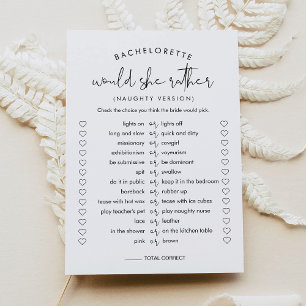 BACHELORETTE
would she rather
(NAUGHTY VERSION)
Check the choice you think the bride would pick.
lights on or lights off
long and slow or quick and dirty
missionary or cowgirl
exhibitionism or voyeurism
be submissive or be dominant
spit or swallow
do it in public or keep it in the bedroom
bareback or rubber up
tease with hot wax or tease with ice cubes
play teacher's pet or play naughty nurse
lace or leather
in the shower or on the kitchen table
pink or brown
TOTAL CORRECT